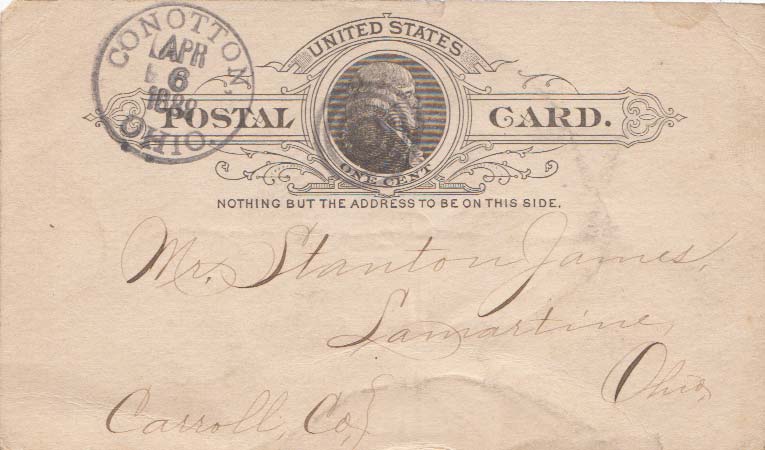 CONOTTON
APR
6
188
OHIO.
UNITED STATES
POSTAL CARD.
ONE CENT
NOTHING BUT THE ADDRESS TO BE ON THIS SIDE.
Mr. Stanton James,
Lamartine,
Ohio,
Carroll, Co,}